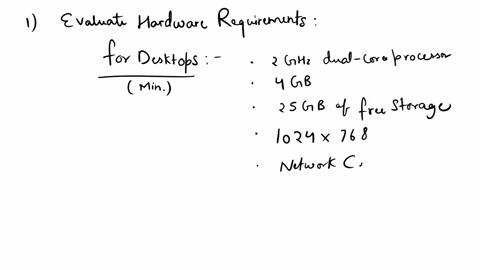 1) Evaluate Hardware Requirements :
for Desktops :- · 2 GHz dual-core processor
(Min.) · 4 GB
· 25 GB of free storage
· 1024 x 768
· Network C